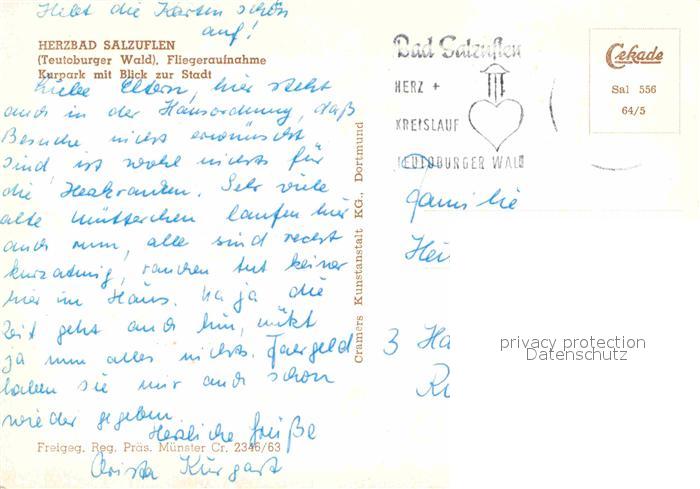 Hebt die Karten schön
auf!
HERZBAD SALZUFLEN
(Teutoburger Wald), Fliegeraufnahme
Kurpark mit Blick zur Stadt
Liebe Eltern, hier steht
auch in der Hausordnung, daß
Besuche nicht erwünscht
sind, ist wohl nichts für
die Herzkranken. Sehr viele
alte Mütterchen laufen hier
auch rum, alle sind recht
kurzatmig, rauchen tut keiner
hier im Haus. Na ja die
Zeit geht auch hin, nützt
ja nun alles nichts. Fahrgeld
haben sie mir auch schon
wieder gegeben.
Herzliche Grüße
Freigeg. Reg. Präs. Münster Cr. 2346/63
Christa Kurgast
Cramers Kunstanstalt KG., Dortmund
Bad Salzuflen
HERZ +
KREISLAUF
TEUTOBURGER WALD
Cekade
Sal 556
64/5
Familie
Hei
3 Ha
privacy protection
Datenschutz